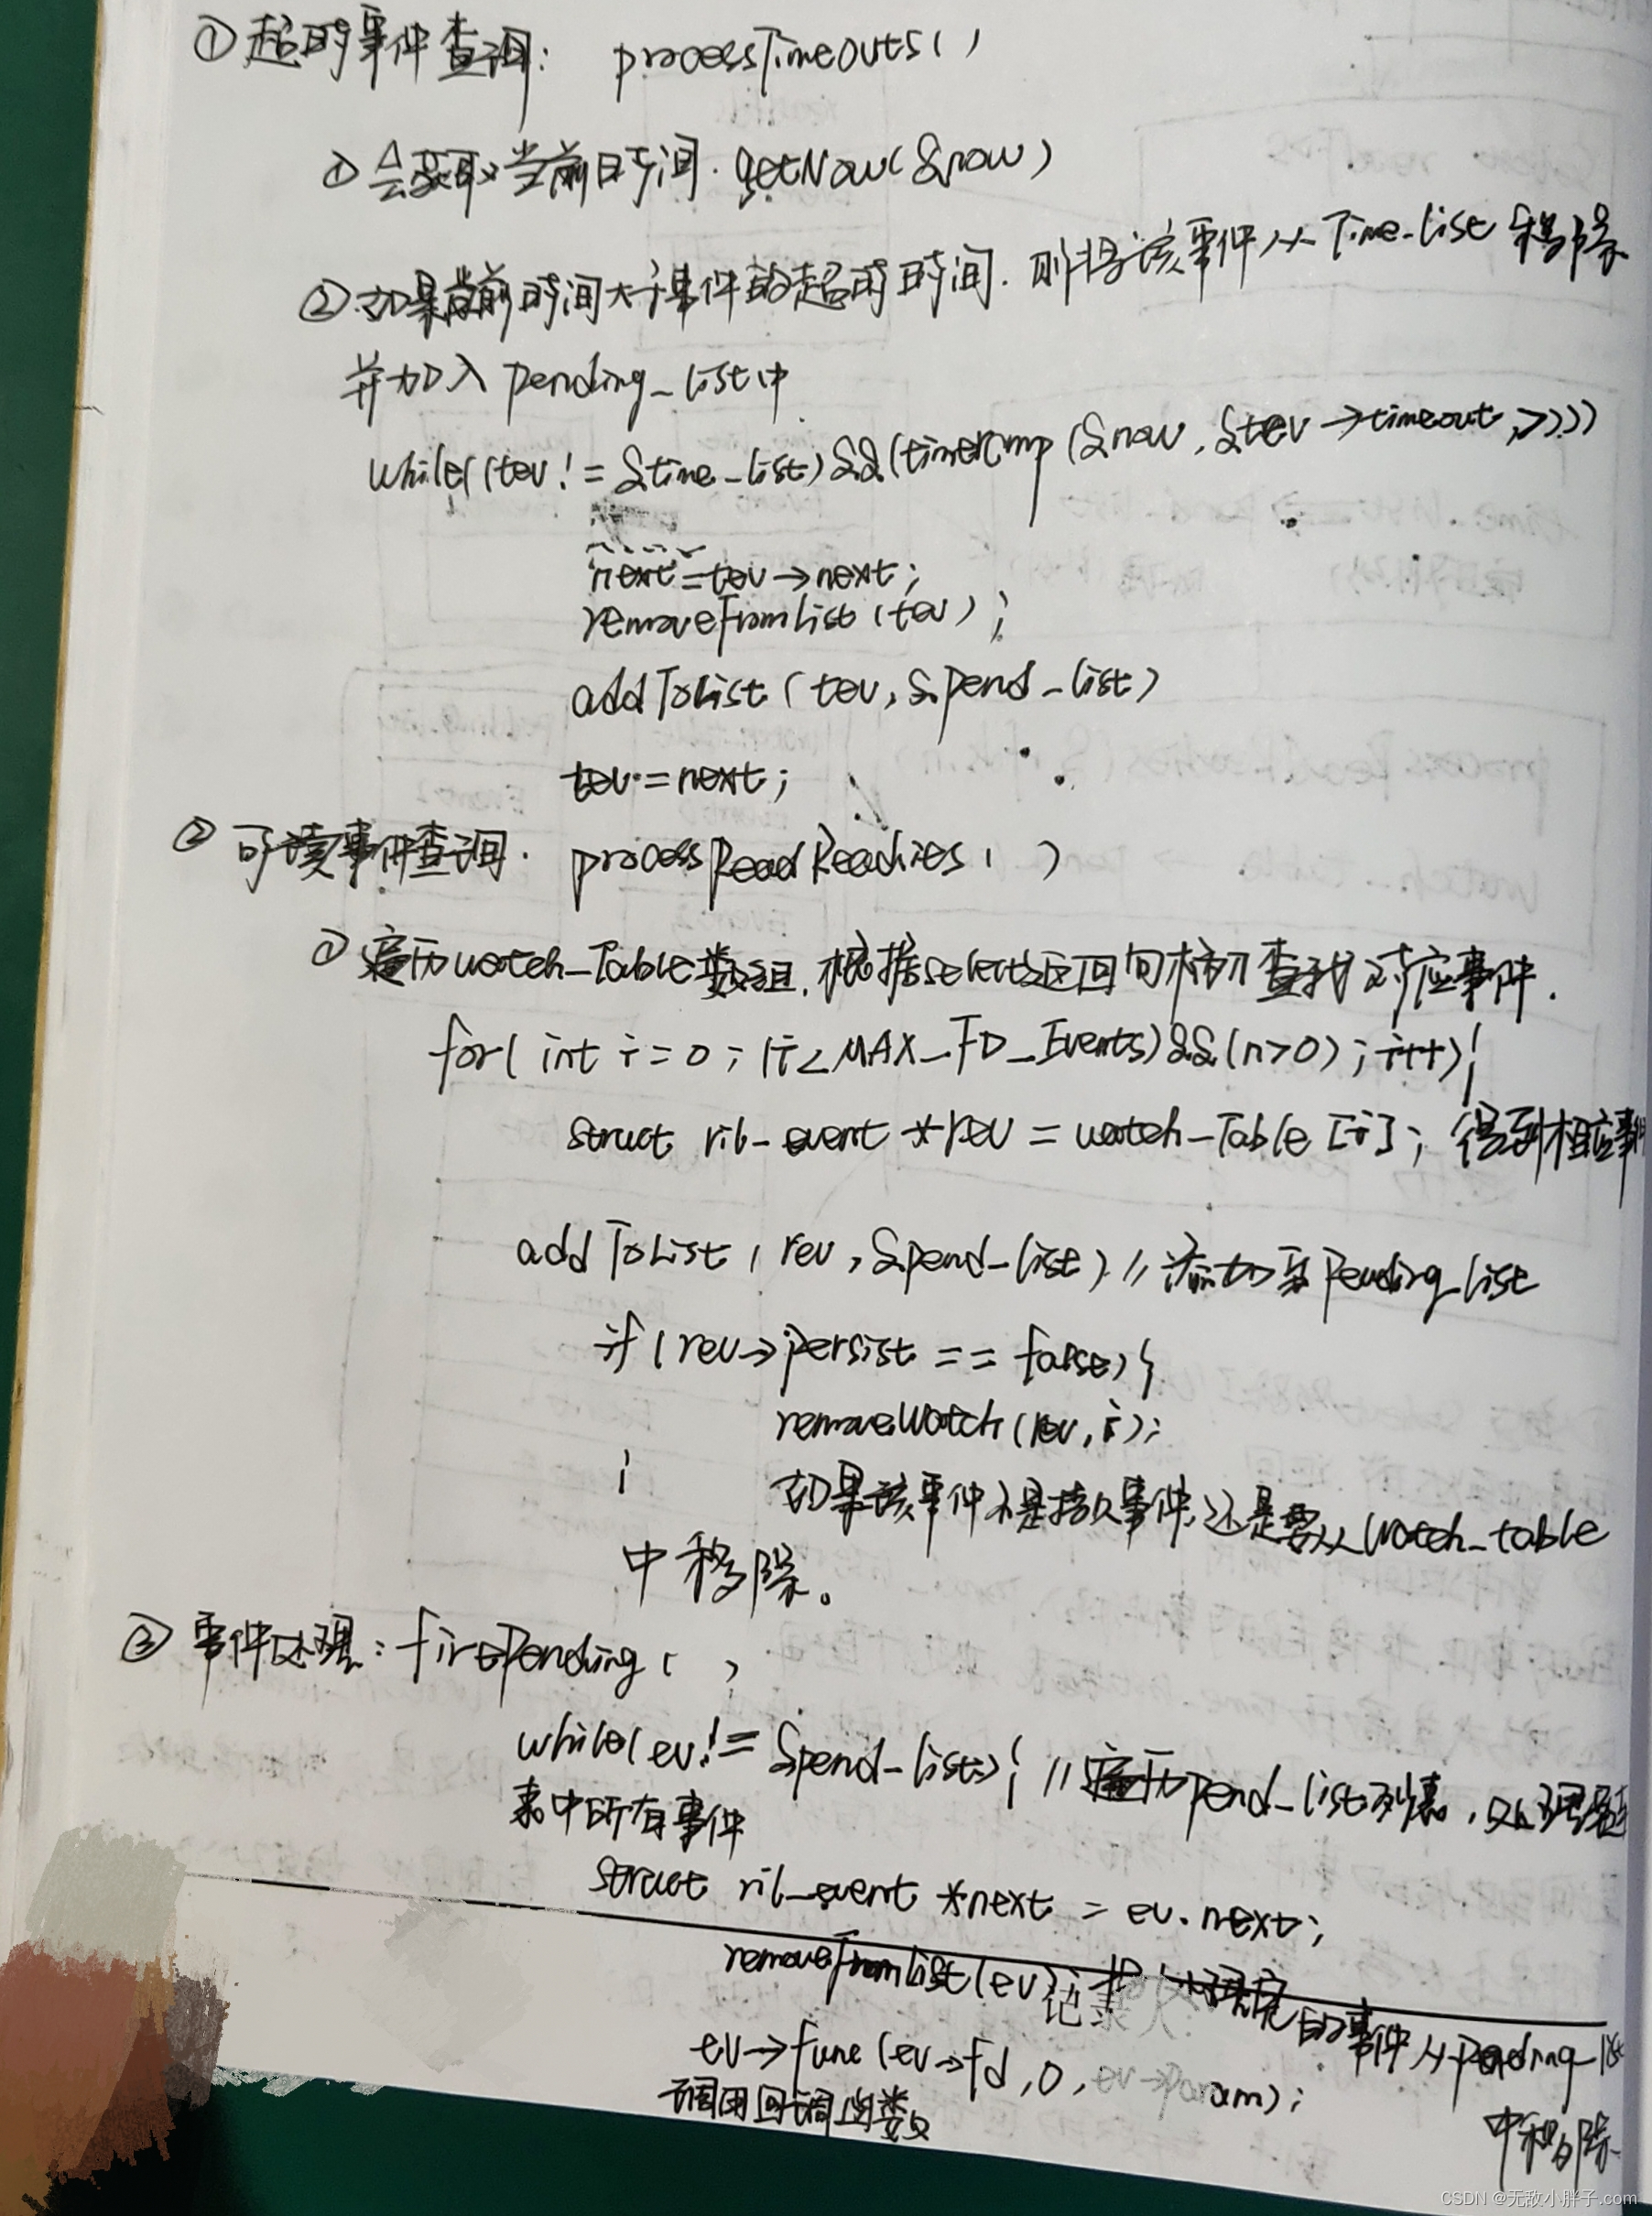 ①超时事件查询： processTimeouts( )
①会获取当前时间. getNow(&now)
②如果当前时间大于事件的超时时间. 则将该事件从Time_list移除
并加入pending_list中
while((tev != &time_list)&&(timercmp(&now, &tev->timeout, >)))
next=tev->next;
removeFromList(tev);
addToList(tev, &pend_list)
tev=next;
②可读事件查询. processReadReadies( )
①遍历watch_Table数组, 根据select返回句柄 查找对应事件.
for( int i=0; (i<MAX_FD_Events)&&(n>0); i++){
struct ril_event *rev = watch_Table[i]; 得到相应事件
addToList(rev, &pend_list) //添加至Pending_list
if(rev->persist == false){
removeWatch(rev, i);
}
如果该事件不是持久事件, 还是要从watch_table
中移除。
③事件处理: firePending( )
while(ev != &pend_list){ //遍历pend_list列表, 处理
表中所有事件
struct ril_event *next = ev.next;
removeFromList(ev) 的事件从pending_list
中移除
ev->func(ev->fd, 0, ev->param);
调用回调函数
CSDN @无敌小胖子.com